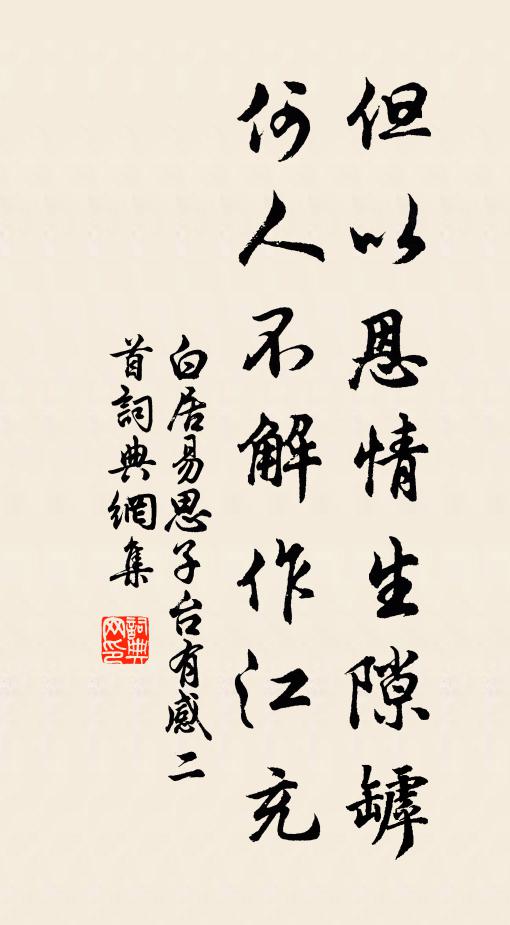 但以恩情生隙罅
何人不解作江充
白居易思子台有感二
首詞典網集
詞典網印